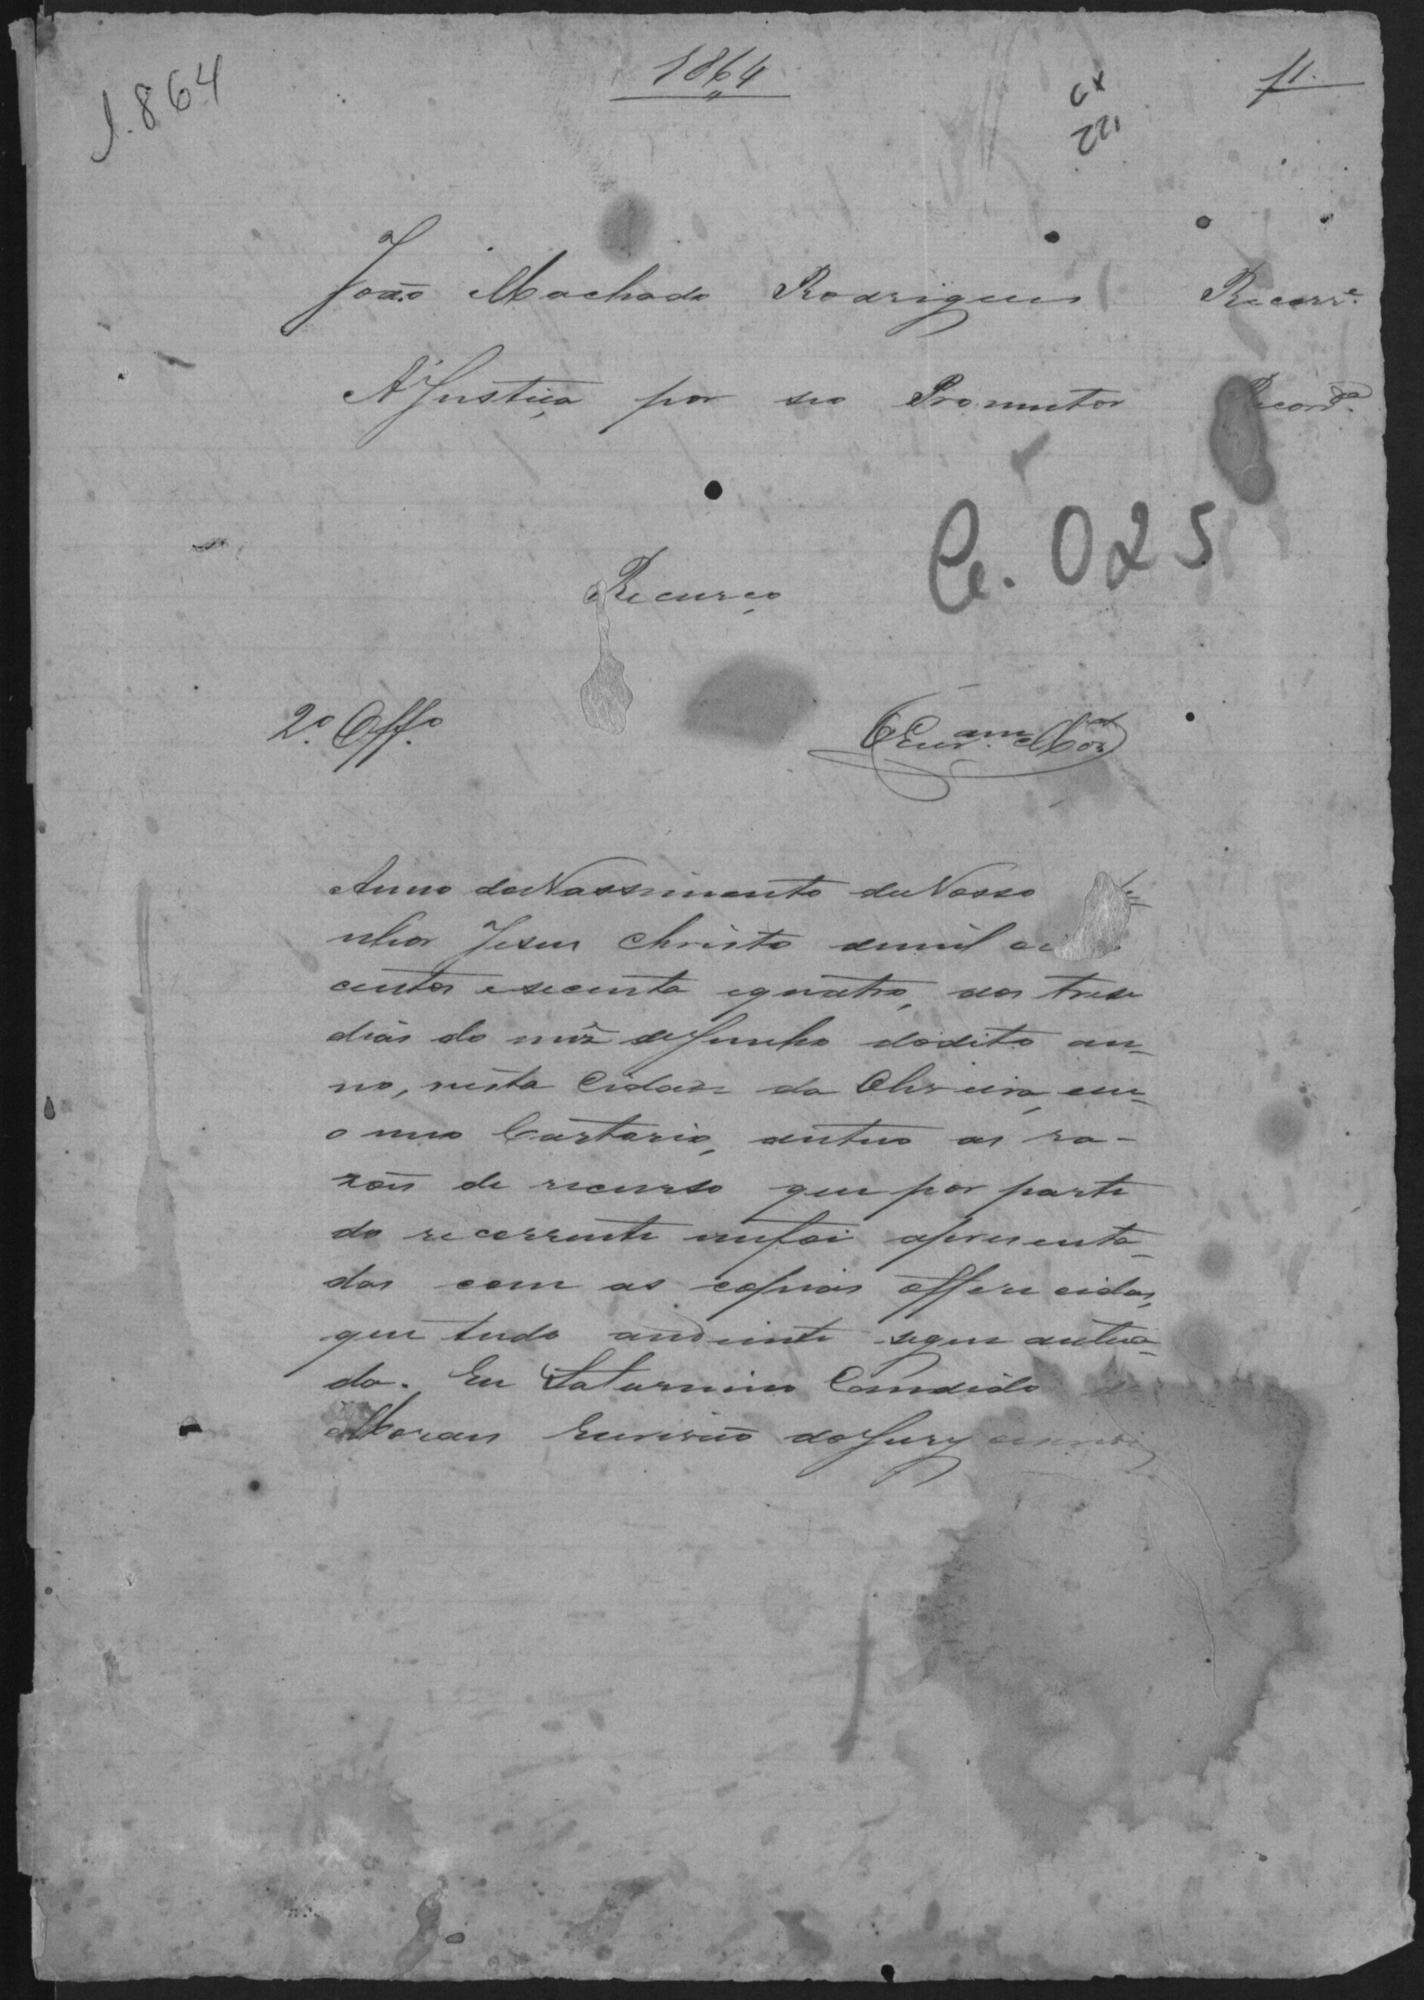 1.864
1864
f1.
CX
221
João Machado Rodrigues Recorr.e
A Justiça por seo Promutor Record.a
Ce. 025
Recurço
2.º Off.º
Anno do Nassimento de Nosso
nhor Jesus Christo de mil oi
centos e secenta e quatro, aos treze
dias do mez de Junho do dito an-
no, nesta Cidade da Oliveira, em
o meo Cartorio, autuo as ra-
zões de recurso que por parte
do recorrente me foi apresenta-
das com as copias offerecidas,
que tudo audiente segue autua-
do. Eu Saturnino Candido de
Moraes Escrivão do Jury